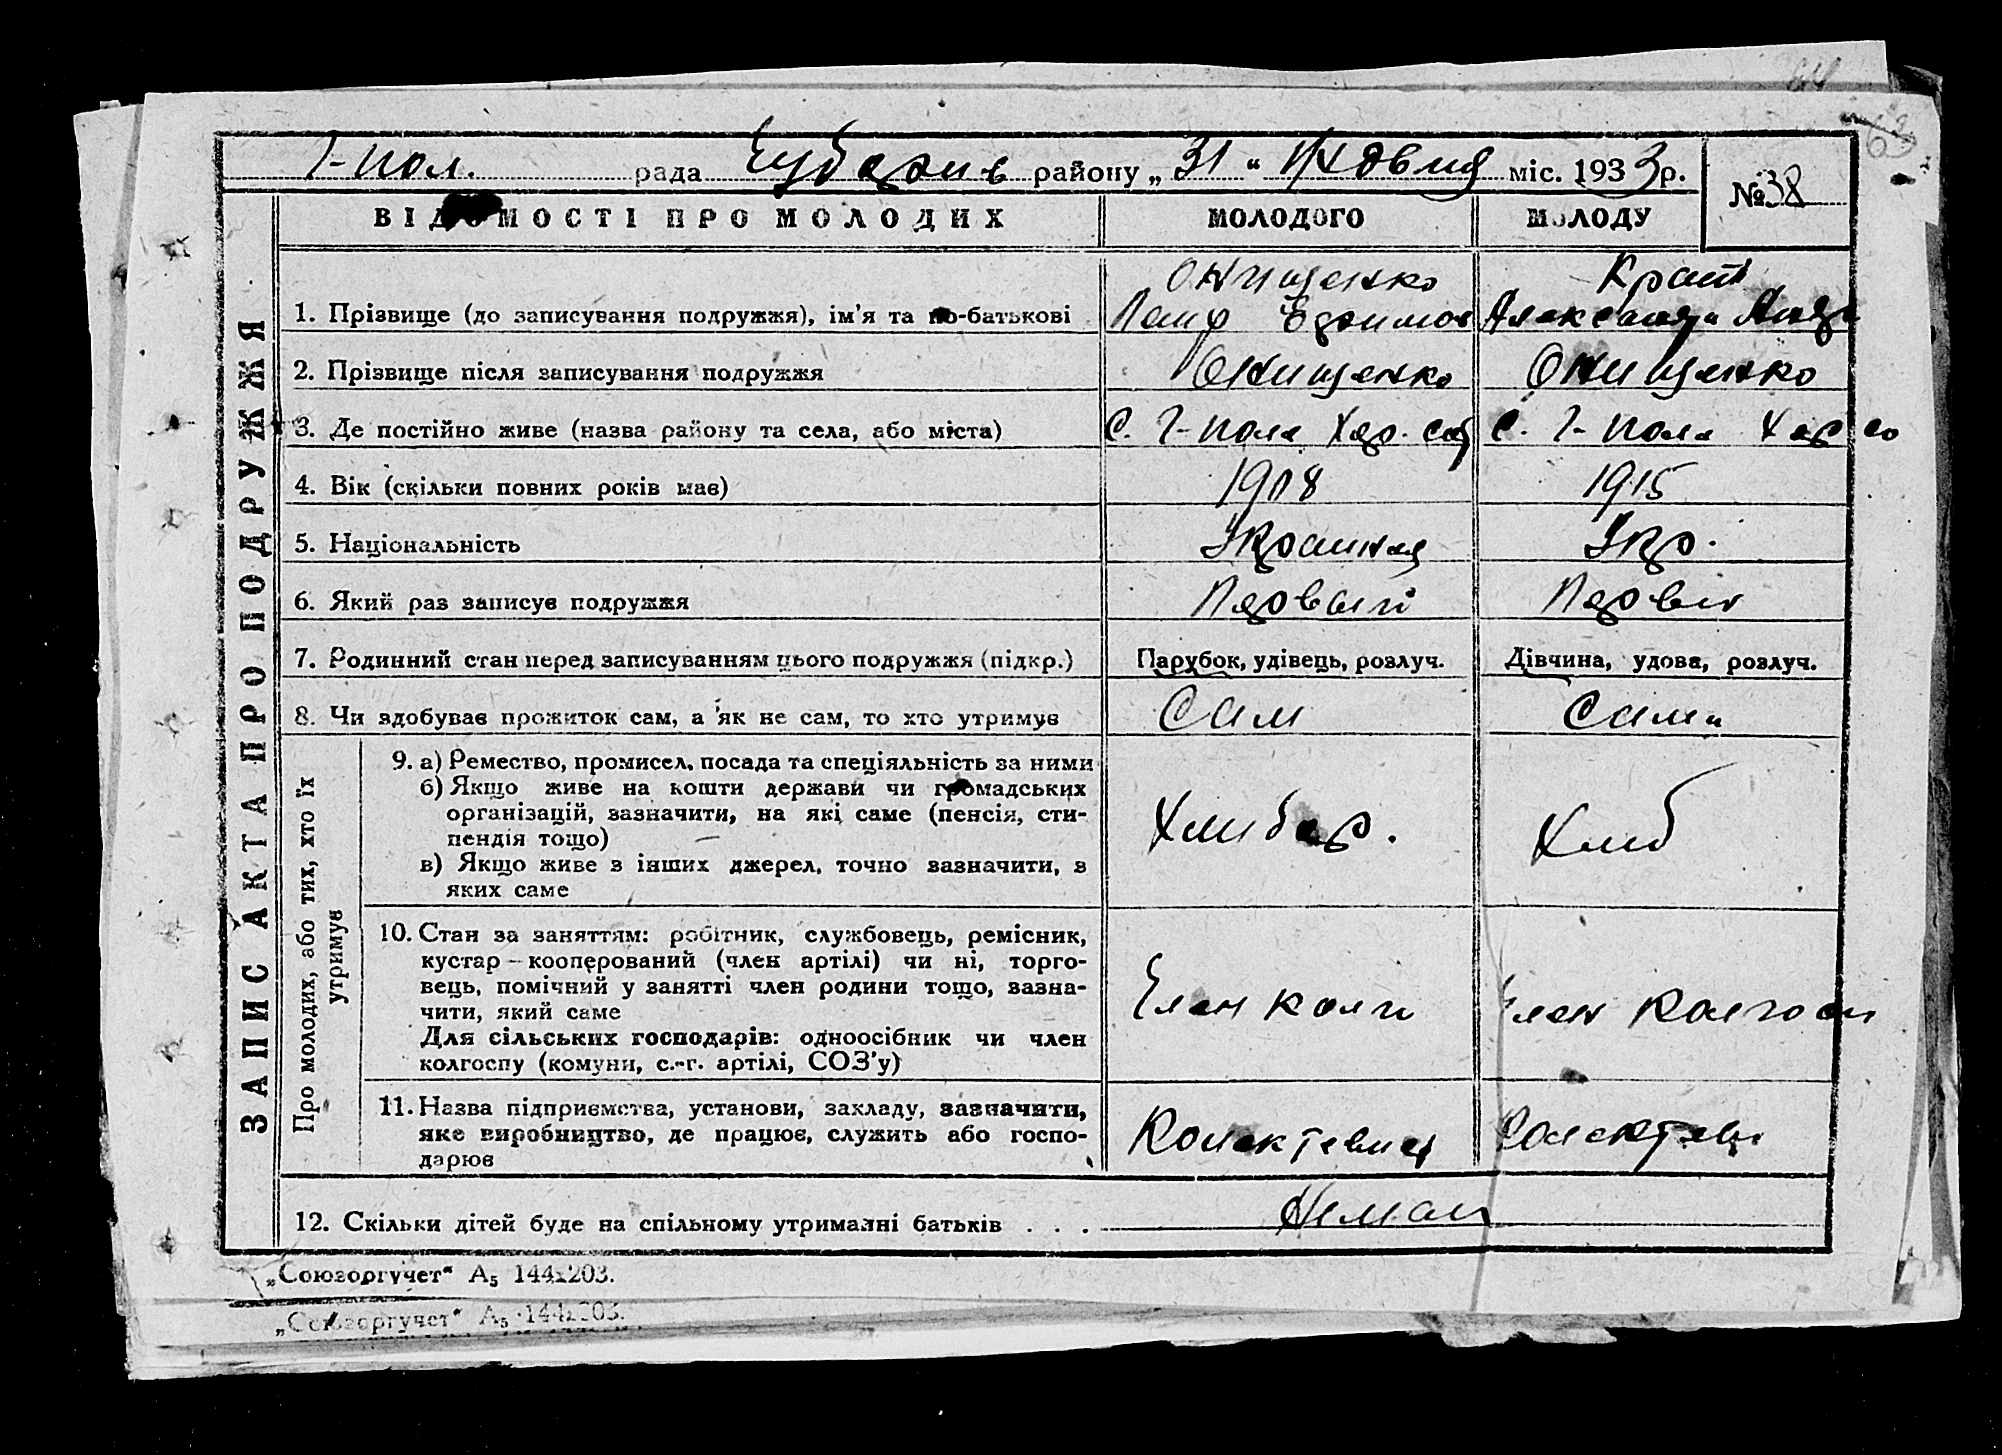 рада району „31“ міс. 1933 р.
№ 38
ВІДОМОСТІ ПРО МОЛОДИХ
МОЛОДОГО
МОЛОДУ
ЗАПИС АКТА ПРО ПОДРУЖЖЯ
1. Прізвище (до записування подружжя), ім'я та по-батькові
Онищенко
Ефимов
Крат
2. Прізвище після записування подружжя
Онищенко
Онищенко
3. Де постійно живе (назва району та села, або міста)
с. Хар.
с.
4. Вік (скільки повних років має)
1908
1915
5. Національність
Укр.
6. Який раз записує подружжя
Первый
7. Родинний стан перед записуванням цього подружжя (підкр.)
Парубок, удівець, розлуч.
Дівчина, удова, розлуч.
8. Чи здобуває прожиток сам, а як не сам, то хто утримує
Сам
Сама
Про молодих, або тих, хто їх утримує
9. а) Ремество, промисел, посада та спеціяльність за ними
б) Якщо живе на кошти держави чи громадських
організацій, зазначити, на які саме (пенсія, сти-
пендія тощо)
в) Якщо живе з інших джерел, точно зазначити, з
яких саме
Хлибор.
Хлиб
10. Стан за заняттям: робітник, службовець, ремісник,
кустар—кооперований (член артілі) чи ні, торго-
вець, помічний у занятті член родини тощо, зазна-
чити, який саме
Для сільських господарів: одноосібник чи член
колгоспу (комуни, с.-г. артілі, СОЗ'у)
Член колг
Член колгосп
11. Назва підприємства, установи, закладу, зазначити,
яке виробництво, де працює, служить або госпо-
дарює
12. Скільки дітей буде на спільному утриманні батьків . . .
Нимаи
„Союзоргучет“ А5 144х203.
„Союзоргучет“ А5 144х203.